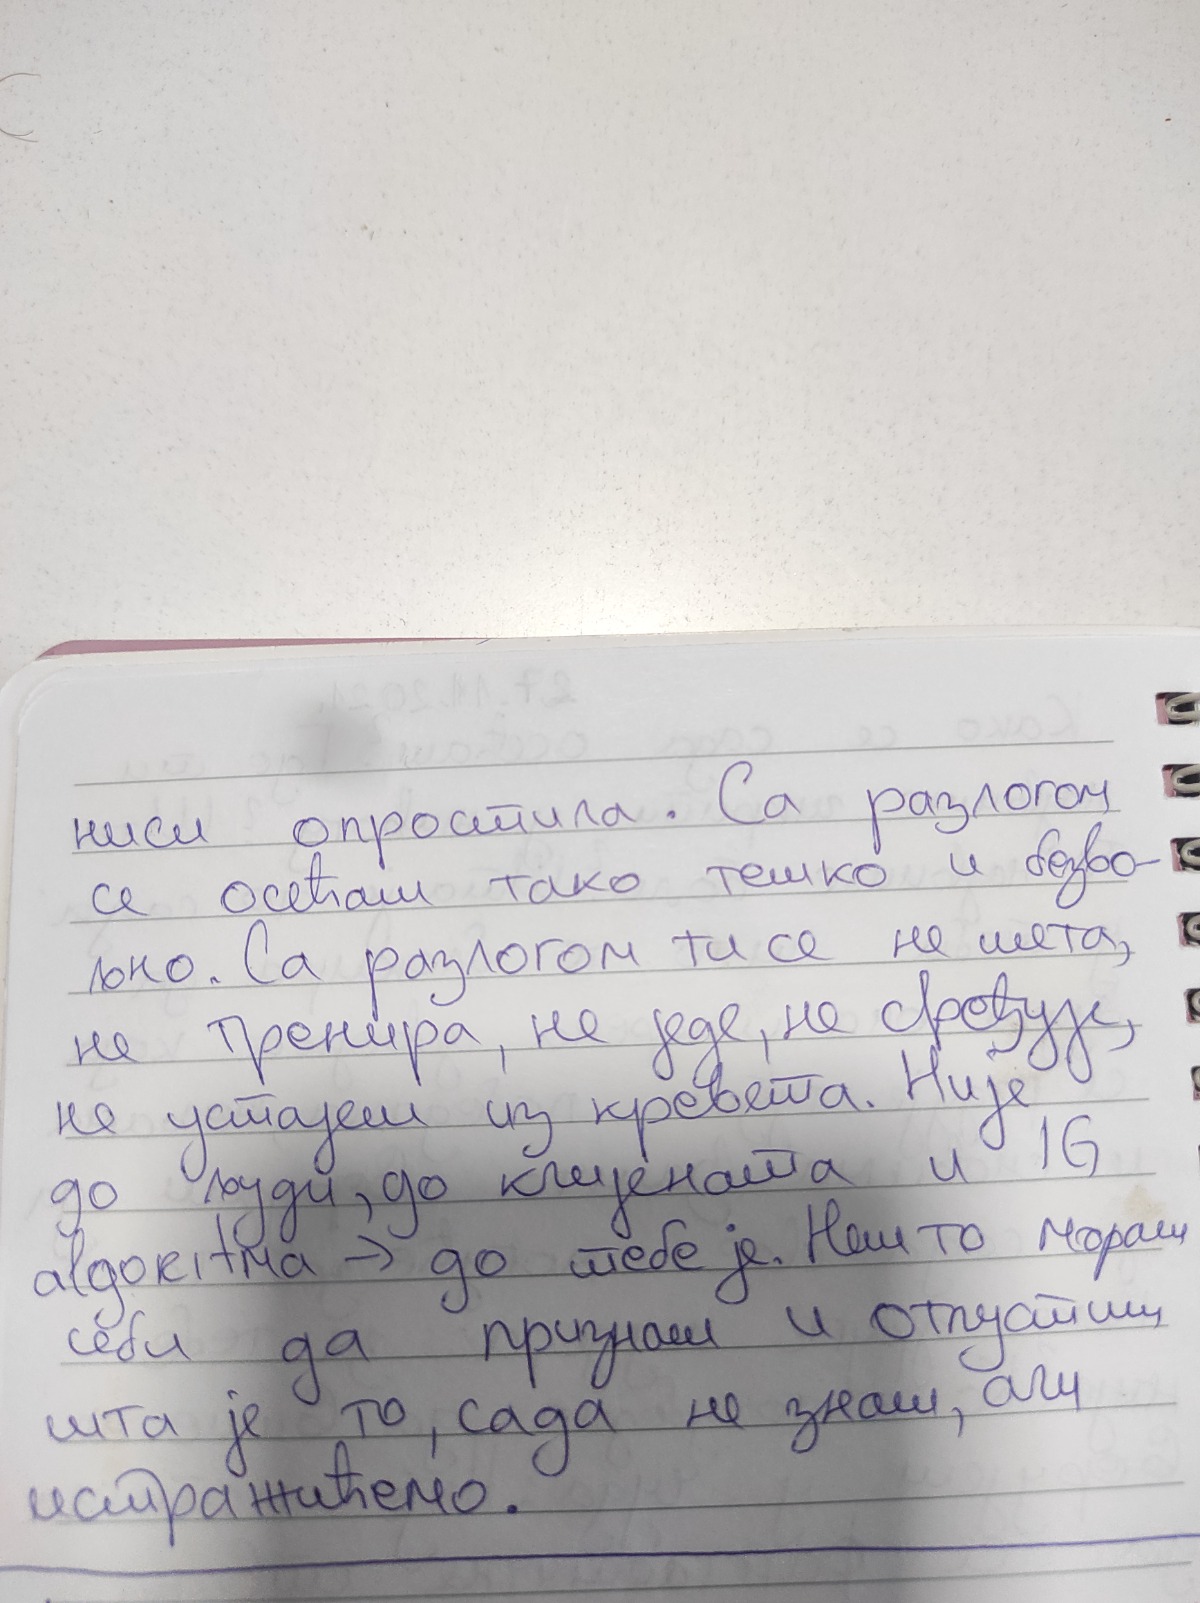 ниси опростила. Са разлогом
се осећаш тако тешко и безво-
љно. Са разлогом ти се не шета,
не тренира, не једе, не
не устајеш из кревета. Није
до људи, до клијената и IG
algoкitма → до тебе је. Нешто мораш
себи да признаш и отпустиш
шта је то, сада не знаш, али
истражићемо.